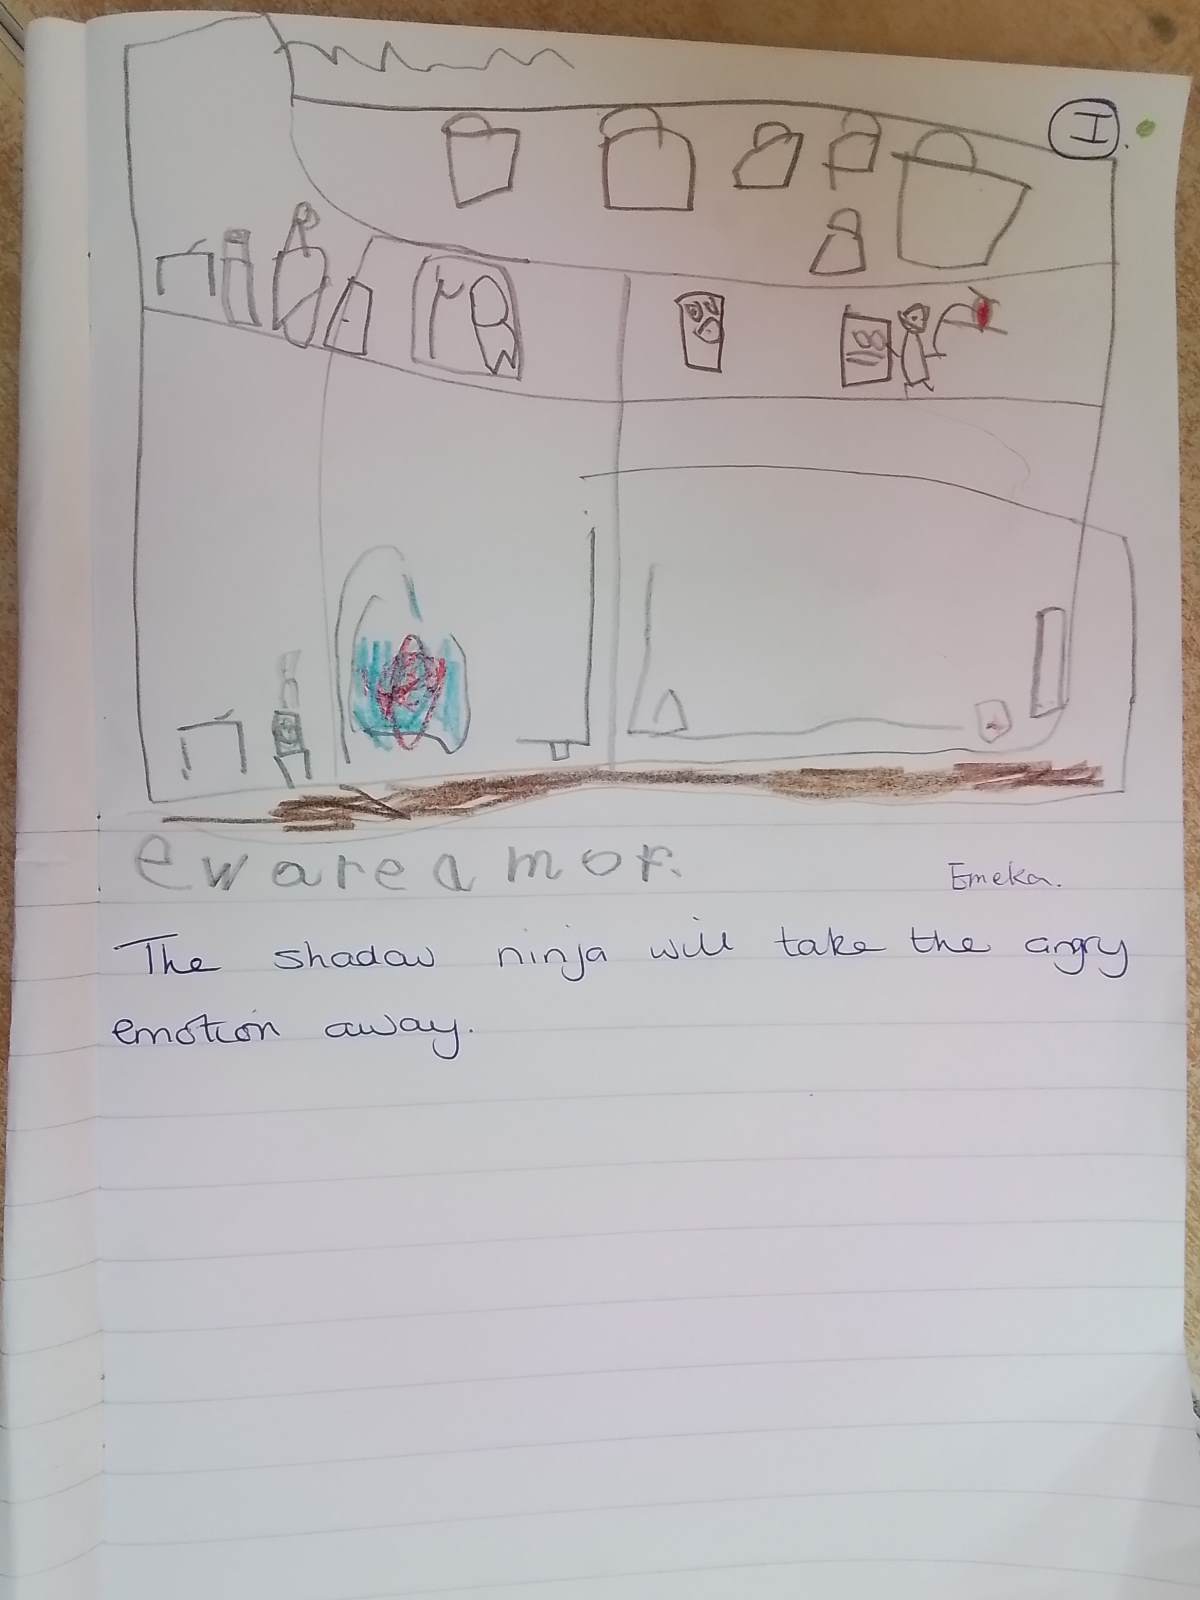 I.
ewareamor.
Emeka.
The shadow ninja will take the angry
emotion away.